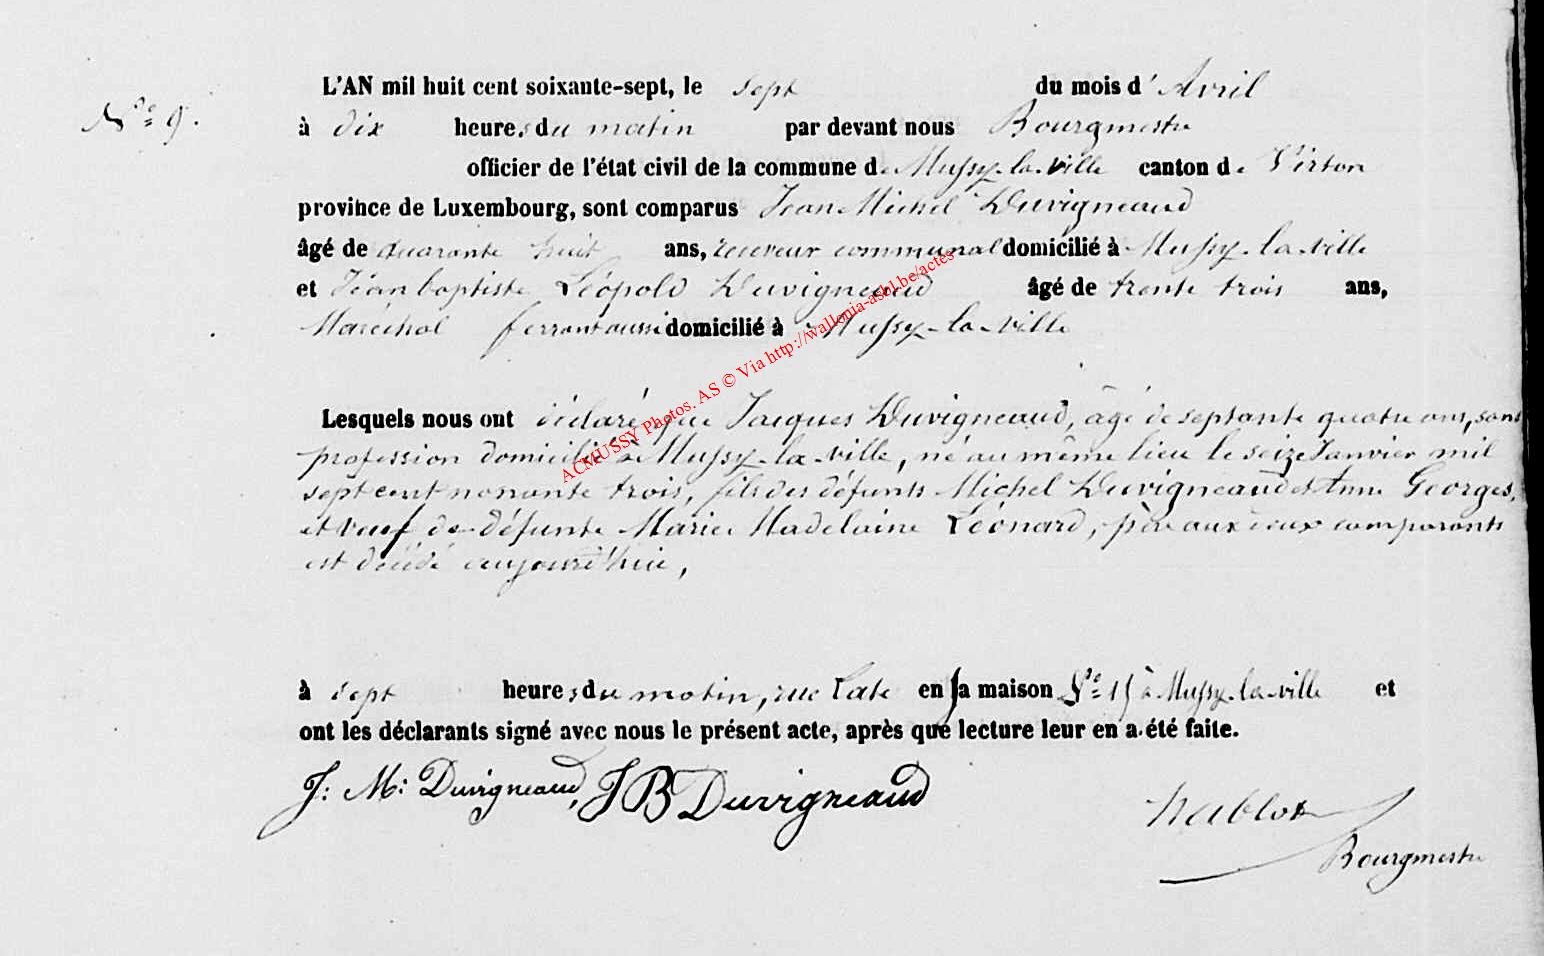 L'AN mil huit cent soixante-sept, le sept du mois d'Avril
N° 9.
à dix heures du matin par devant nous Bourgmestre
officier de l'état civil de la commune de Mussy-la-ville canton de Virton
province de Luxembourg, sont comparus Jean Michel Duvigneaud
âgé de quarante huit ans, receveur communal domicilié à Mussy-la-ville
et Jean baptiste Léopold Duvigneaud âgé de trente trois ans,
Maréchal ferrant aussi domicilié à Mussy-la-ville
Lesquels nous ont déclaré que Jacques Duvigneaud, âgé de septante quatre ans, sans
profession domicilié à Mussy-la-ville, né au même lieu le seize Janvier mil
sept cent nonante trois, fils des défunts Michel Duvigneaud et Anne Georges,
et veuf de défunte Marie Madelaine Léonard, père aux deux comparants
est décédé aujourd'hui,
à sept heures du matin, rue en sa maison N° 15 à Mussy-la-ville et
ont les déclarants signé avec nous le présent acte, après que lecture leur en a été faite.
J: M: Duvigneaud, J B Duvigneaud
Nablot
Bourgmestre
ACMUSSY Photos. AS © Via http://wallonia-asbl.be/actes